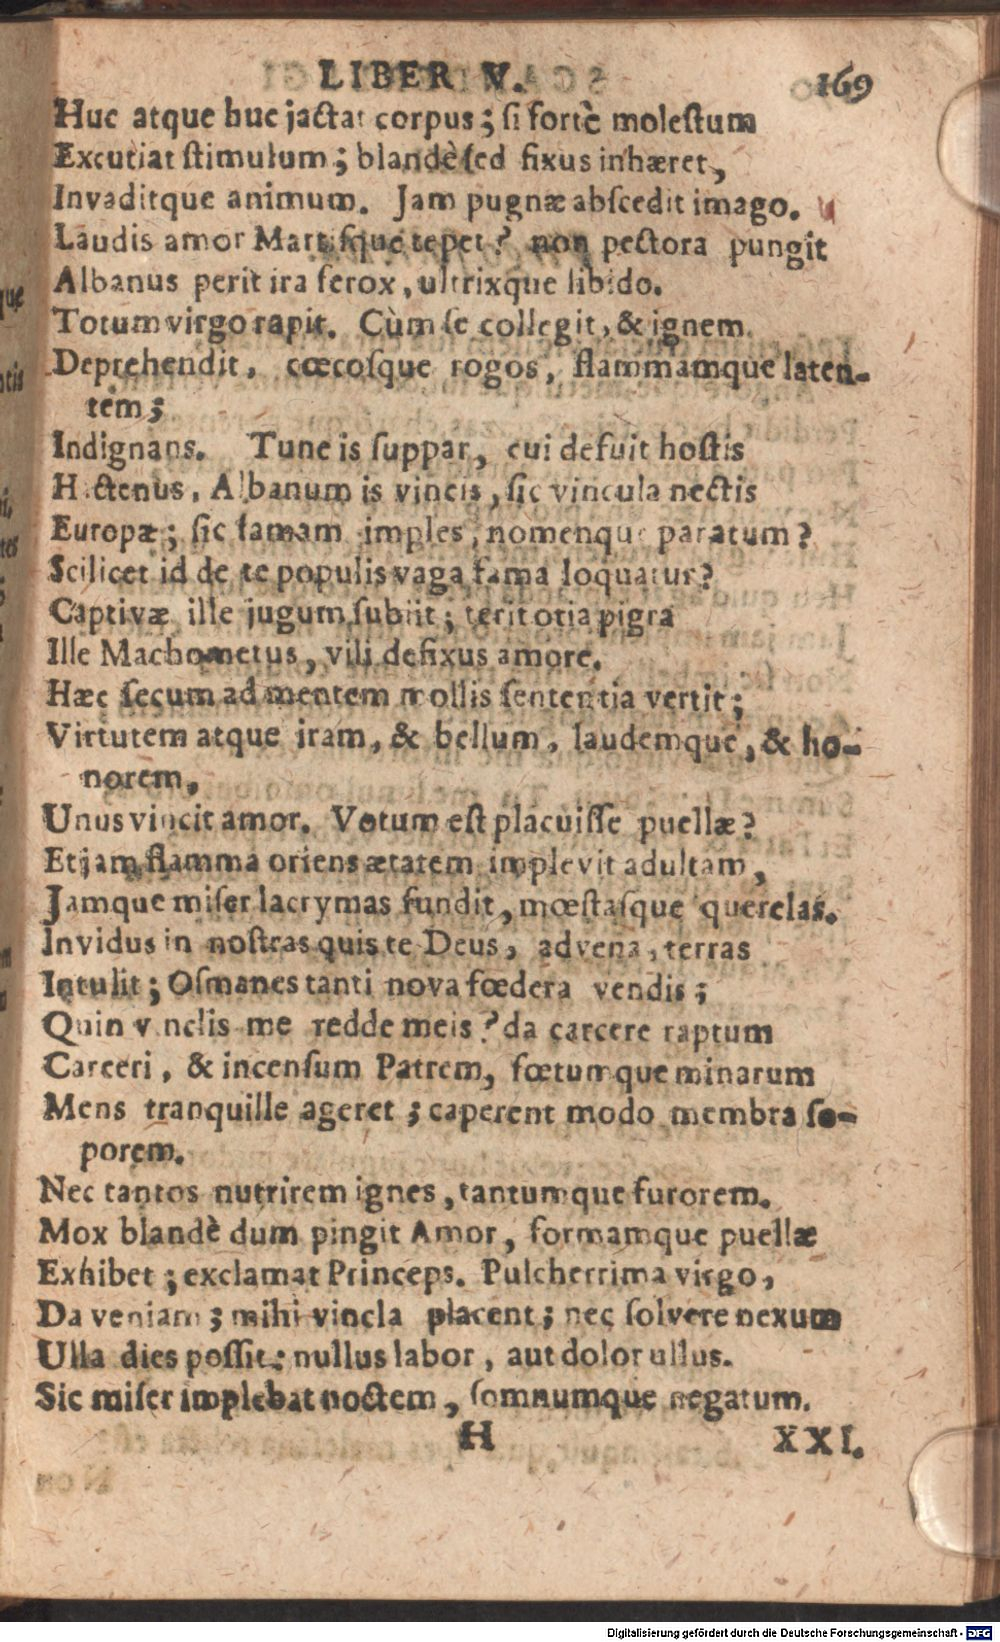 LIBER V. 169
Huc atque huc jactat corpus; si fortè molestum
Excutiat stimulum; blandè sed fixus inhæret,
Invaditque animum. Jam pugnæ abscedit imago.
Laudis amor Martisque tepet? non pectora pungit
Albanus perit ira ferox, ultrixque libido.
Totum virgo rapit. Cùm se collegit, & ignem
Deprehendit, cœcosque rogos, flammamque laten-
tem;
Indignans. Tune is suppar, cui defuit hostis
Hactenus, Albanum is vincis, sic vincula nectis
Europæ; sic famam imples, nomenque paratum?
Scilicet id de te populis vaga fama loquatur?
Captivæ ille jugum subiit; terit otia pigra
Ille Machometus, vili defixus amore.
Hæc secum ad mentem mollis sententia vertit;
Virtutem atque iram, & bellum, laudemque, & ho-
norem,
Unus vincit amor. Votum est placuisse puellæ?
Etjam flamma oriens ætatem implevit adultam,
Jamque miser lacrymas fundit, mœstasque querelas.
Invidus in nostras quis te Deus, advena, terras
Intulit; Osmanes tanti nova fœdera vendis;
Quin vinclis me redde meis? da carcere raptum
Carceri, & incensum Patrem, fœtumque minarum
Mens tranquille ageret; caperent modo membra so-
porem.
Nec tantos nutrirem ignes, tantumque furorem.
Mox blandè dum pingit Amor, formamque puellæ
Exhibet; exclamat Princeps. Pulcherrima virgo,
Da veniam; mihi vincla placent; nec solvere nexum
Ulla dies possit; nullus labor, aut dolor ullus.
Sic miser implebat noctem, somnumque negatum.
H XXI.
Digitalisierung gefördert durch die Deutsche Forschungsgemeinschaft - DFG